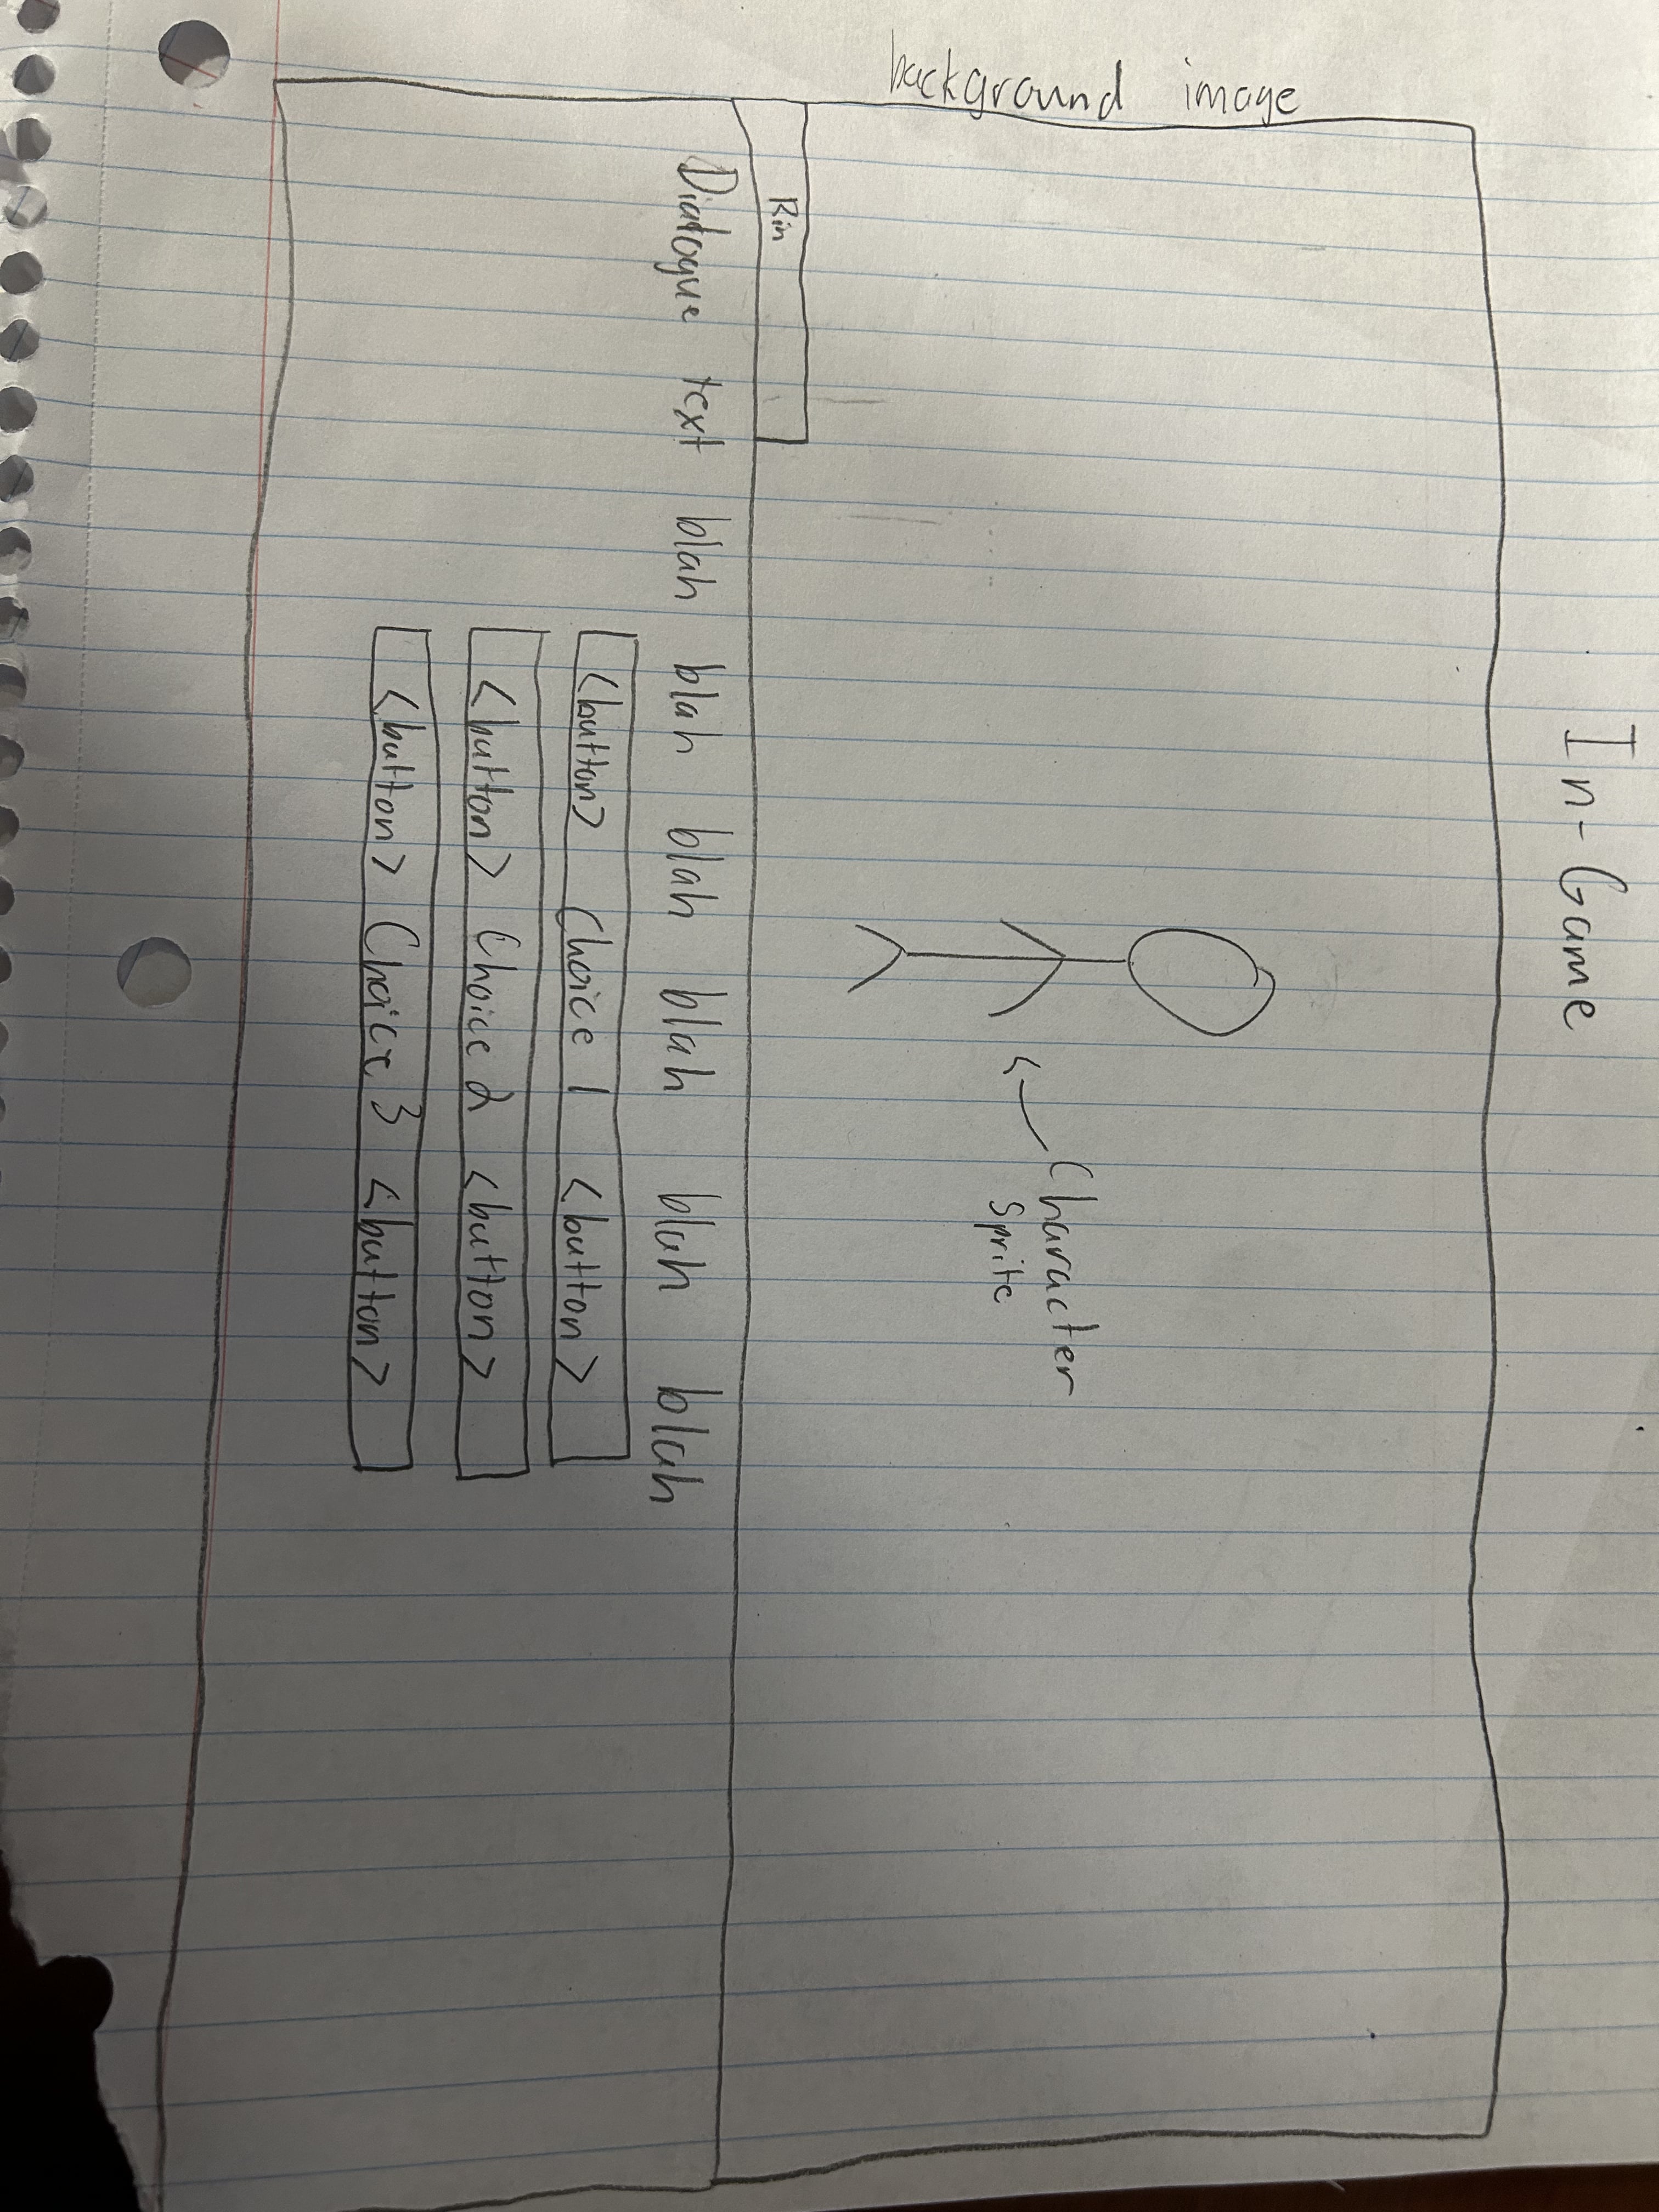 In-Game
background image
Character
Sprite
Rin
Dialogue text blah blah blah blah blah blah
<button> Choice 1 <button>
<button> Choice 2 <button>
<button> Choice 3 <button>